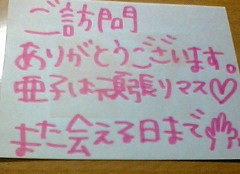 ご訪問
ありがとうございます。
亜子は頑張りマス♡
また会える日まで👋